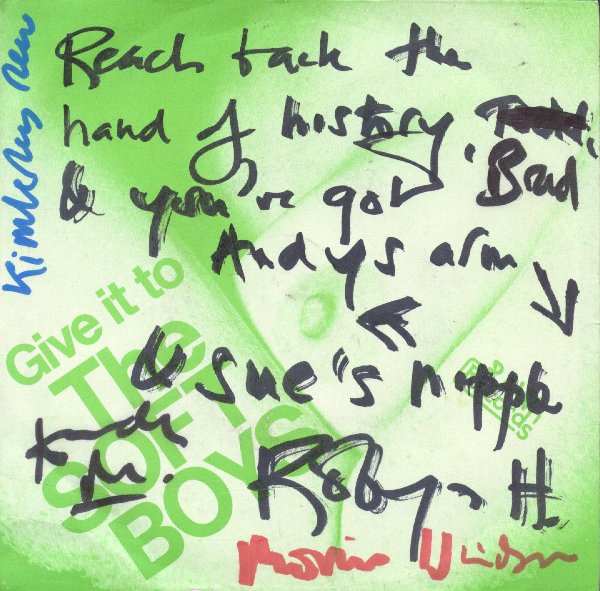 Kimberley Rew
Reach back the
hand of history
& you've got 'Brad
Andy's arm
& Sue's nipple
Give it to
The
SOFT
BOYS
Records
Robyn H.
Morris Windsor